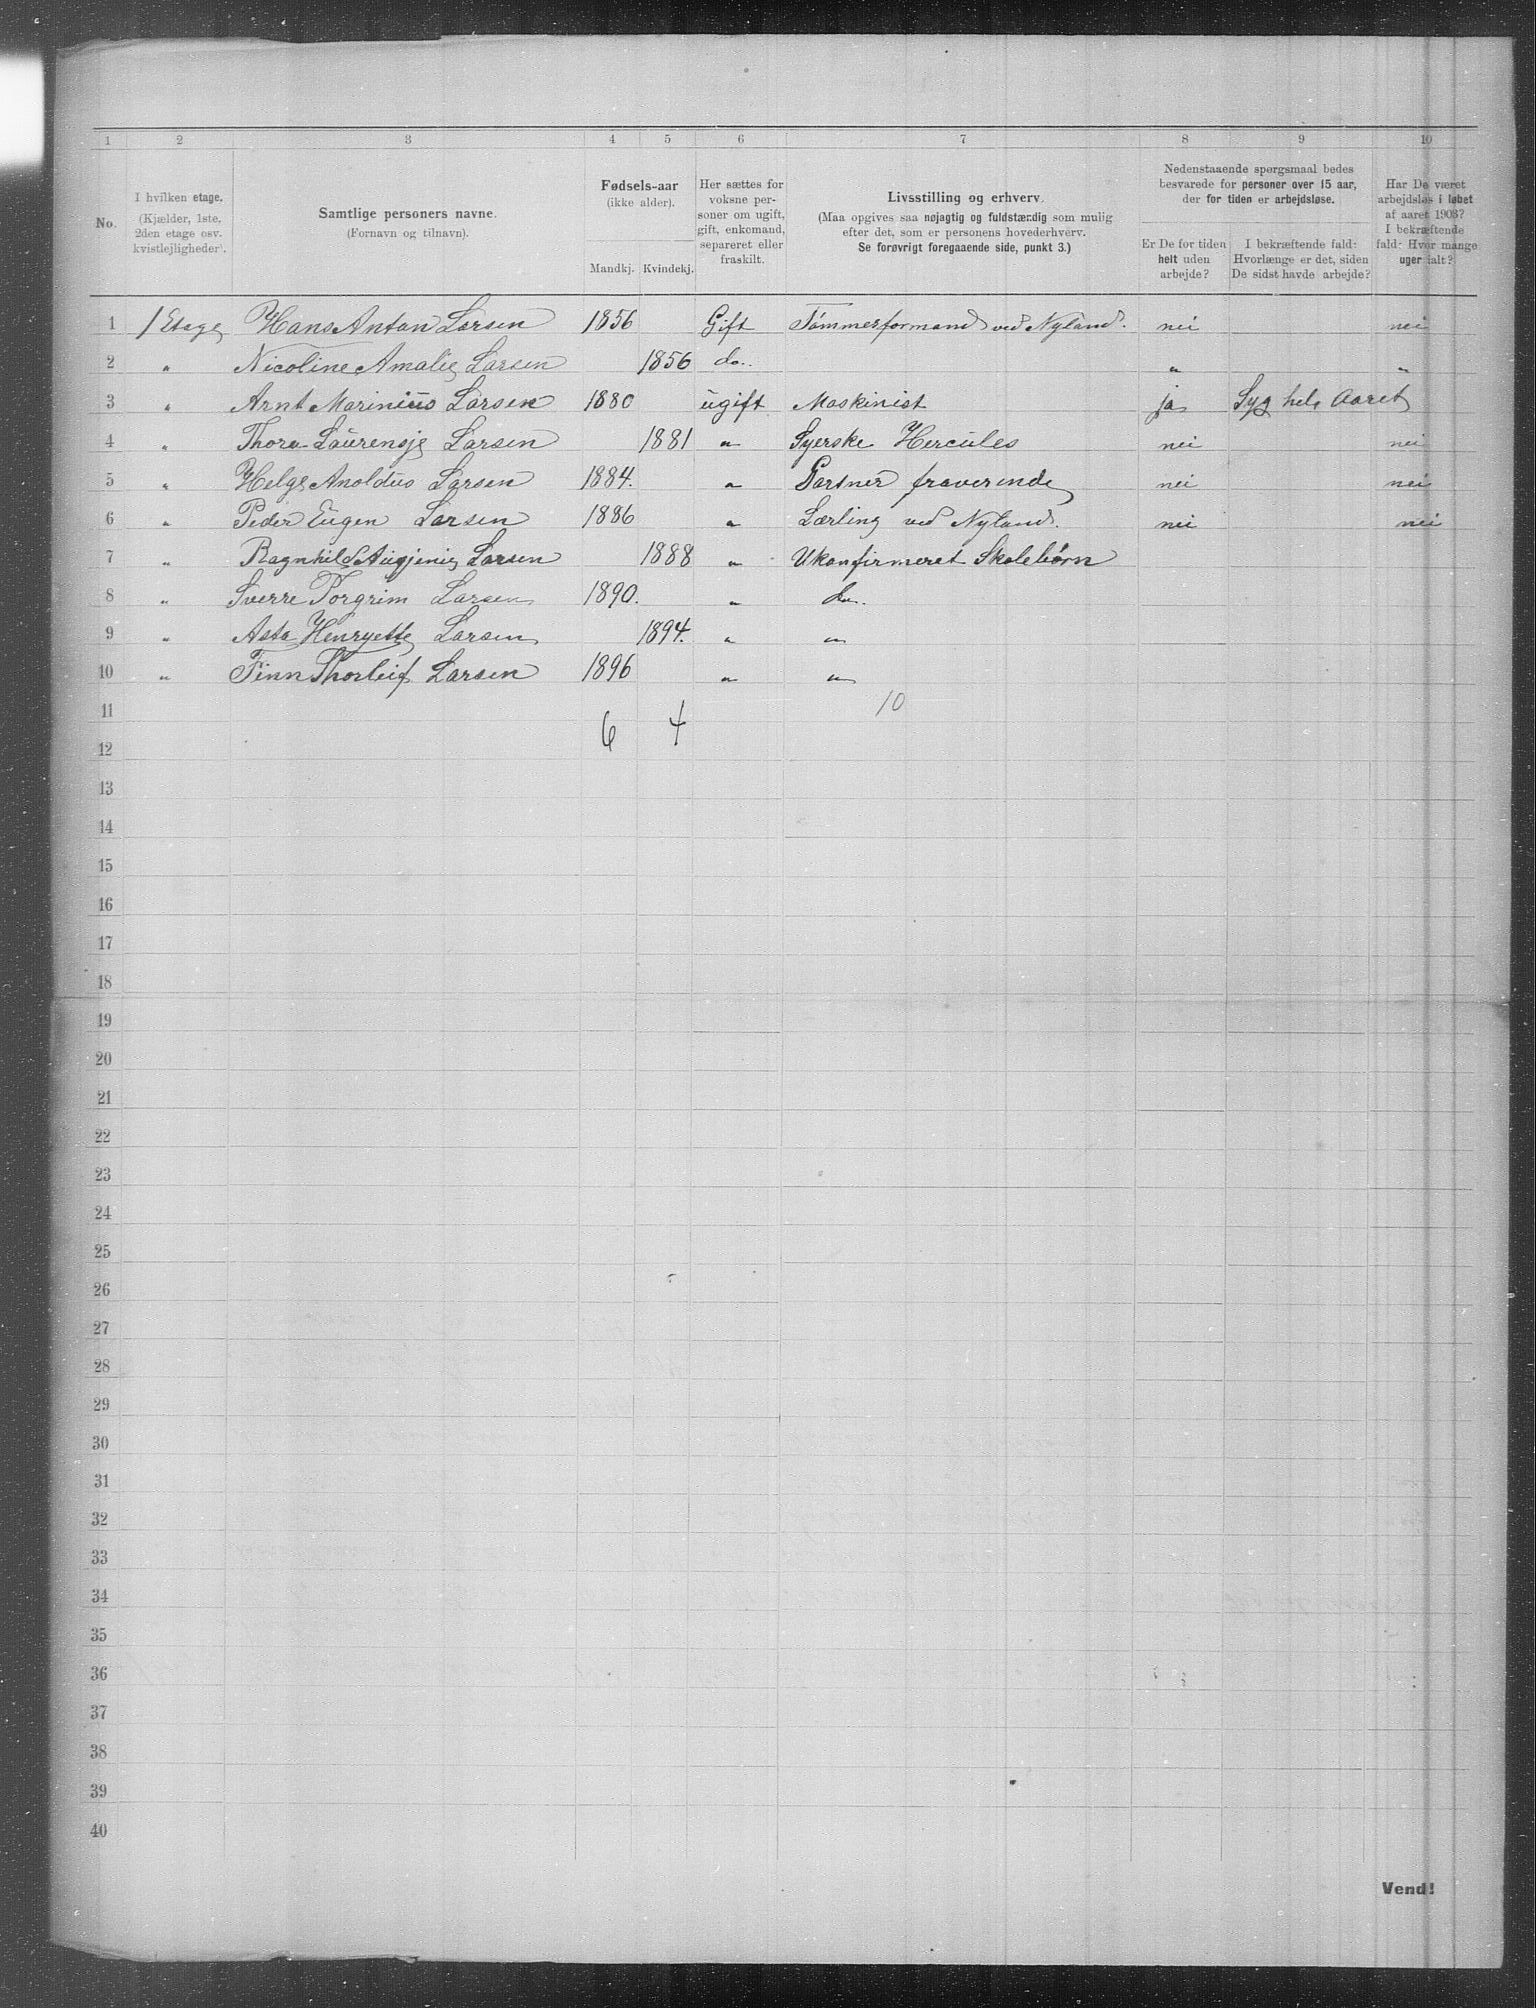 1 2 3 4 5 6 7 8 9 10
No.
I hvilken etage.
(Kjælder, 1ste,
2den etage osv.
kvistlejligheder).
Samtlige personers navne.
(Fornavn og tilnavn).
Fødsels-aar
(ikke alder).
Mandkj. Kvindekj.
Her sættes for
voksne per-
soner om ugift,
gift, enkemand,
separeret eller
fraskilt.
Livsstilling og erhverv.
(Maa opgives saa nøjagtig og fuldstændig som mulig
efter det, som er personens hovederhverv.
Se forøvrigt foregaaende side, punkt 3.)
Nedenstaaende spørgsmaal bedes
besvarede for personer over 15 aar,
der for tiden er arbejdsløse.
Er De for tiden
helt uden
arbejde?
I bekræftende fald:
Hvorlænge er det, siden
De sidst havde arbejde?
Har De været
arbejdsløs i løbet
af aaret 1903?
I bekræftende
fald: Hvor mange
uger ialt?
1 1 Etage Hans Anton Larsen 1856 Gift Tømmerformand ved Nyland. nei nei
2 " Nicoline Amalie Larsen 1856 do. " "
3 " Arnt Marinius Larsen 1880 ugift Maskinist ja Syg hele Aaret
4 " Thora Laurensje Larsen 1881 " Syerske Hercules nei nei
5 " Helge Anoldus Larsen 1884. " Gartner fraverende nei nei
6 " Peder Eugen Larsen 1886 " Lærling ved Nyland. nei nei
7 " Ragnhild Augjenie Larsen 1888 " Ukonfirmeret Skolebørn
8 " Sverre Torgrim Larsen 1890. " do.
9 " Asta Henryette Larsen 1894. " "
10 " Finn Thorleif Larsen 1896 " "
11 10
12 6 4
13
14
15
16
17
18
19
20
21
22
23
24
25
26
27
28
29
30
31
32
33
34
35
36
37
38
39
40
Vend!